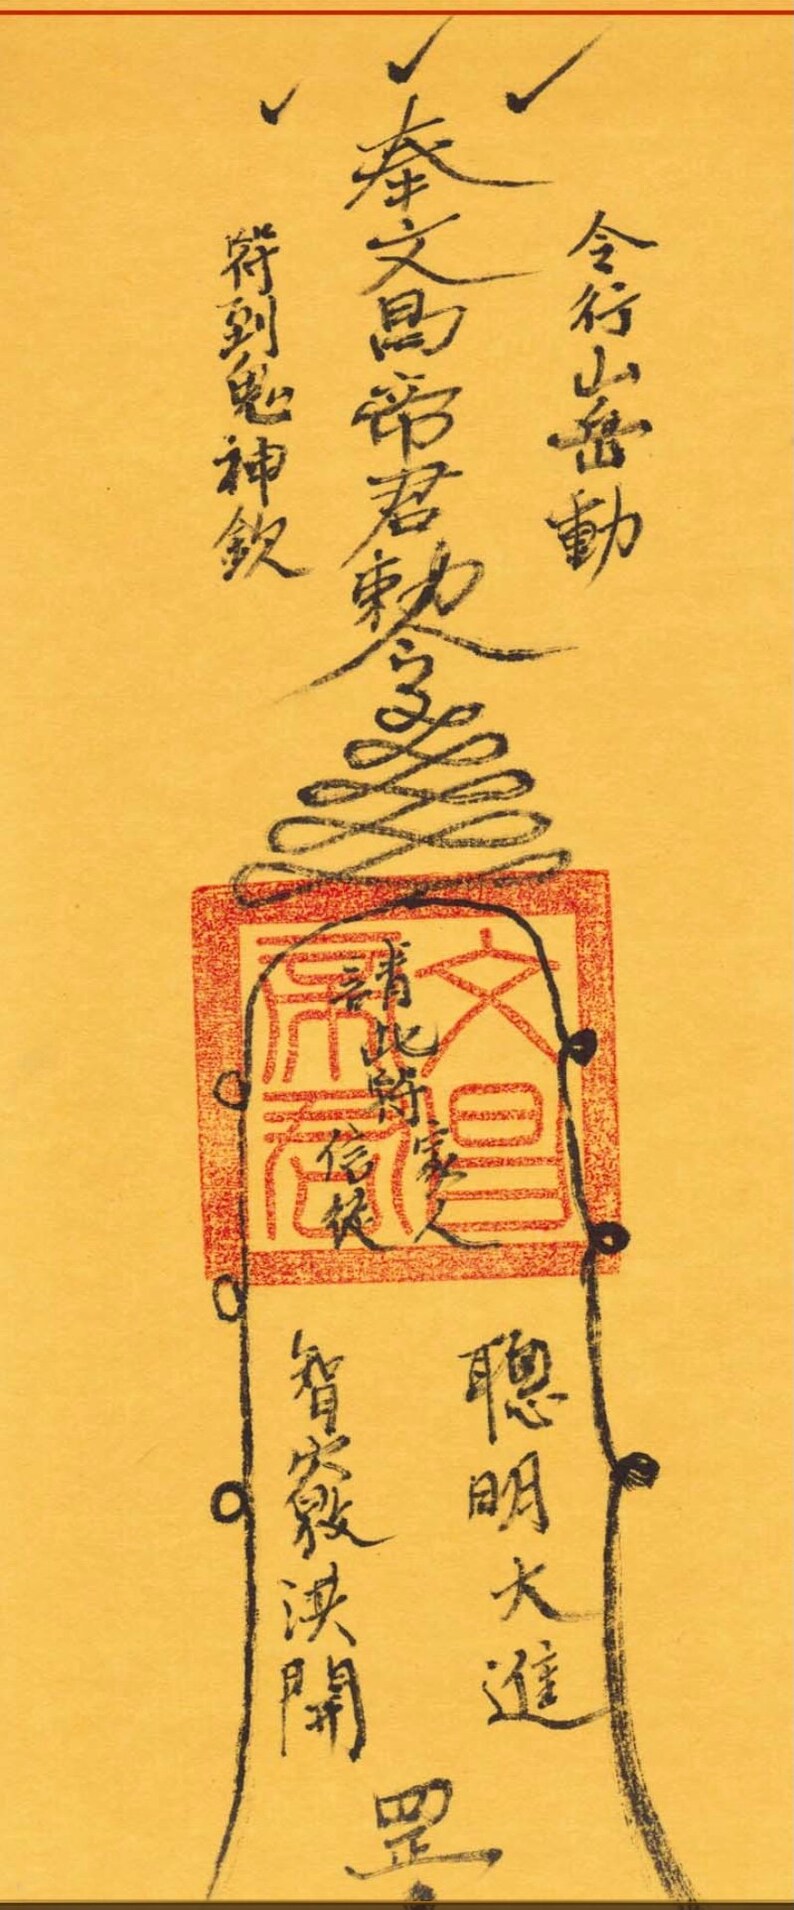 奉文昌帝君勅令
令行山岳動
符到鬼神欽
文昌
帝君
請此符
家人
信徒
聰明大進
智竅洪開
罡